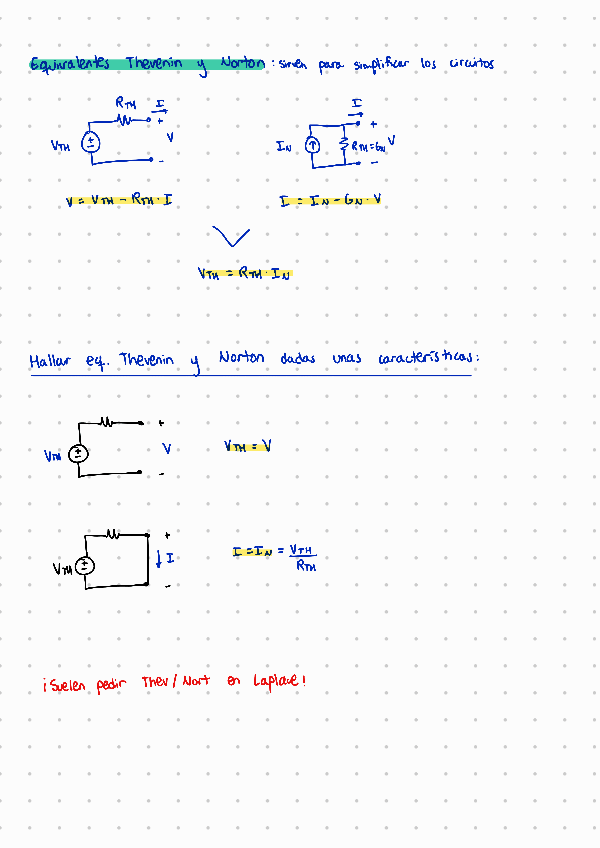 Equivalentes Thevenin y Norton : sirven para simplificar los circuitos
RTH I
+
VTH
±
V
-
I
+
IN
RTH=GN V
-
V = VTH - RTH · I
I = IN - GN · V
VTH = RTH · IN
Hallar eq. Thevenin y Norton dadas unas características:
+
VTH
±
V
-
VTH = V
+
VTH
±
I
-
I = IN = VTH
RTH
¡Suelen pedir Thev/Nort en Laplace!